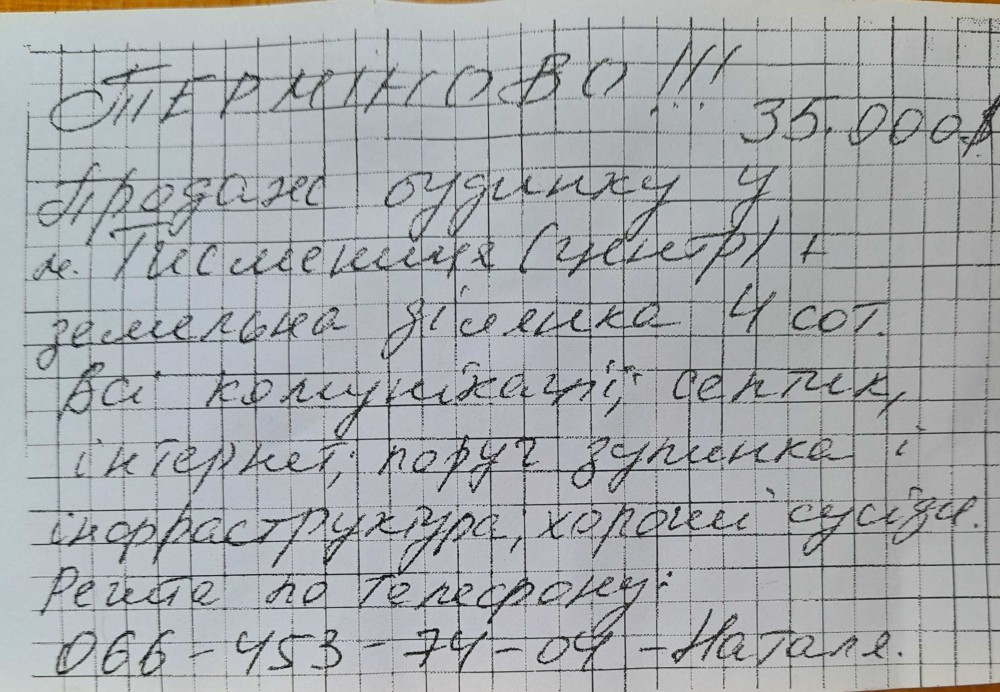 ТЕРМІНОВО!!!
35.000$
Продаж будинку у
м. Тисмениця (центр) +
земельна ділянка 4 сот.
Всі комунікації; септик,
інтернет; поруч зупинка і
інфраструктура, хороші сусіди.
Решта по телефону:
066-453-74-04 - Наталя.